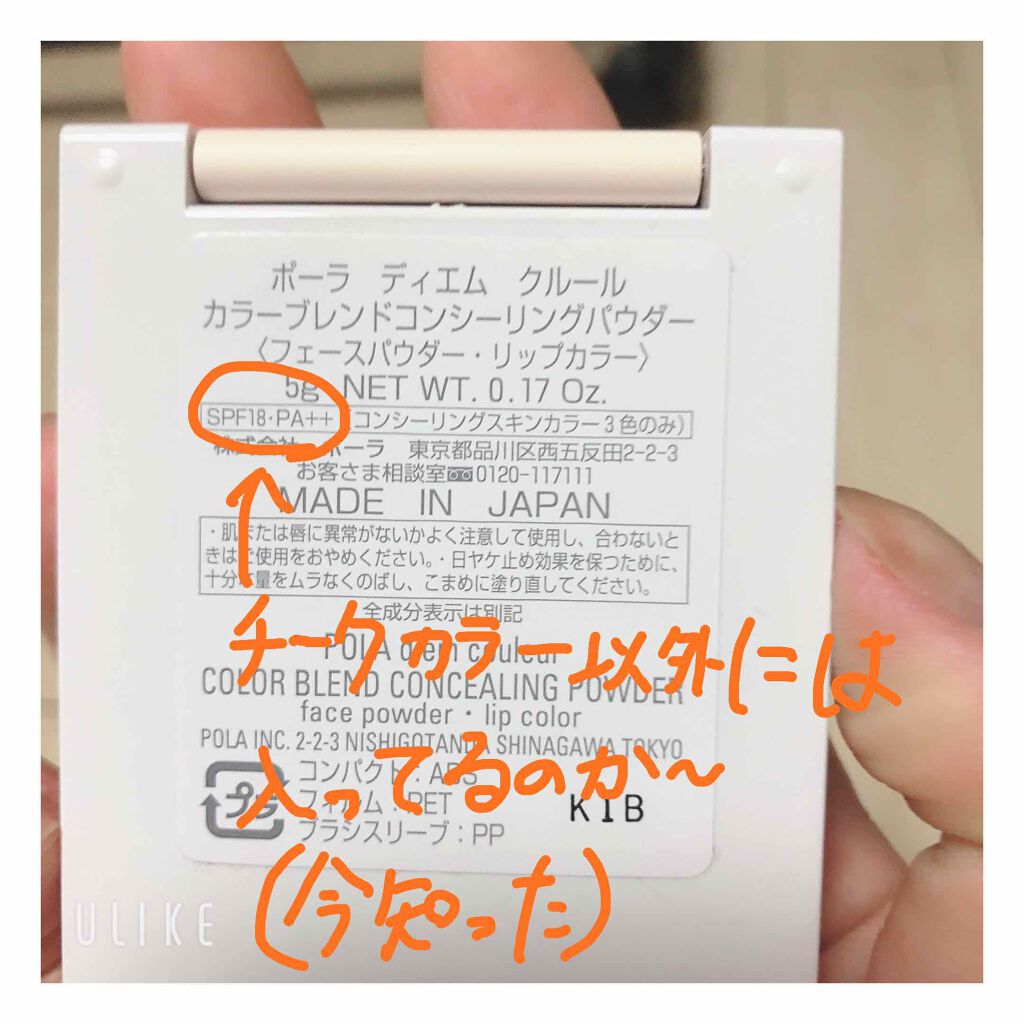 ポーラ ディエム クルール
カラーブレンドコンシーリングパウダー
〈フェースパウダー・リップカラー〉
5g NET WT. 0.17 Oz.
SPF18・PA++ (コンシーリングスキンカラー3色のみ)
株式会社 ポーラ 東京都品川区西五反田2-2-3
お客さま相談室 0120-117111
MADE IN JAPAN
・肌または唇に異常がないかよく注意して使用し、合わないと
きはご使用をおやめください。・日ヤケ止め効果を保つために、
十分な量をムラなくのばし、こまめに塗り直してください。
全成分表示は別記
POLA diem couleur
チークカラー以外には
COLOR BLEND CONCEALING POWDER
face powder・lip color
POLA INC. 2-2-3 NISHIGOTANDA SHINAGAWA TOKYO
入ってるのか〜
プラ
コンパクト：ABS
フィルム：PET
ブラシスリーブ：PP
K1B
(今知った)
ULIKE